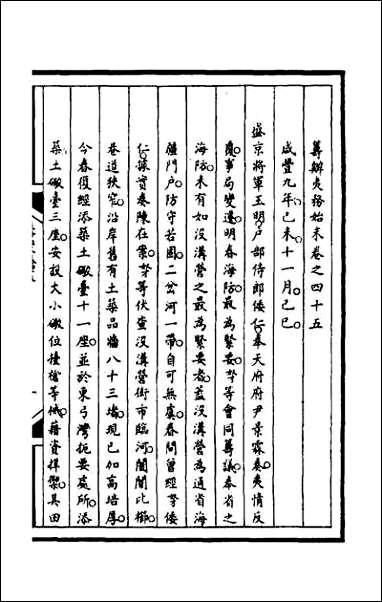 籌辦夷務始末卷之四十五
咸豐九年己未十一月己巳
盛京將軍玉明戶部侍郎倭仁奉天府府尹景霖奏夷情反
覆事局變遷明春海防最為緊要等會同籌議奉省之
海防未有如沒溝營之最為緊要者蓋沒溝營為通省海
疆門戶防守若固二岔河一帶自可無虞春間曾經奴才倭
仁據實奏陳在案奴才等伏查沒溝營街市臨河闤闠比櫛
巷道狹窄沿岸舊有土築品牆八十三堵現已加高培厚
今春復經添築土礮臺十一座並於東弓灣扼要處所添
築土礮臺三座安設大小礮位擡槍等械藉資捍禦其田